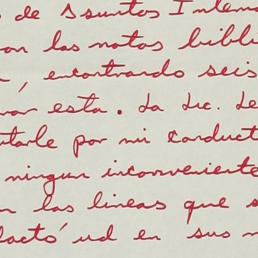 o de Asuntos Intern
on las notas bibli
, encontrando seis
var esta. La Lic. Le
utarle por mi conduct
ningun inconveniente
n las lineas que s
dactó ud en sus n